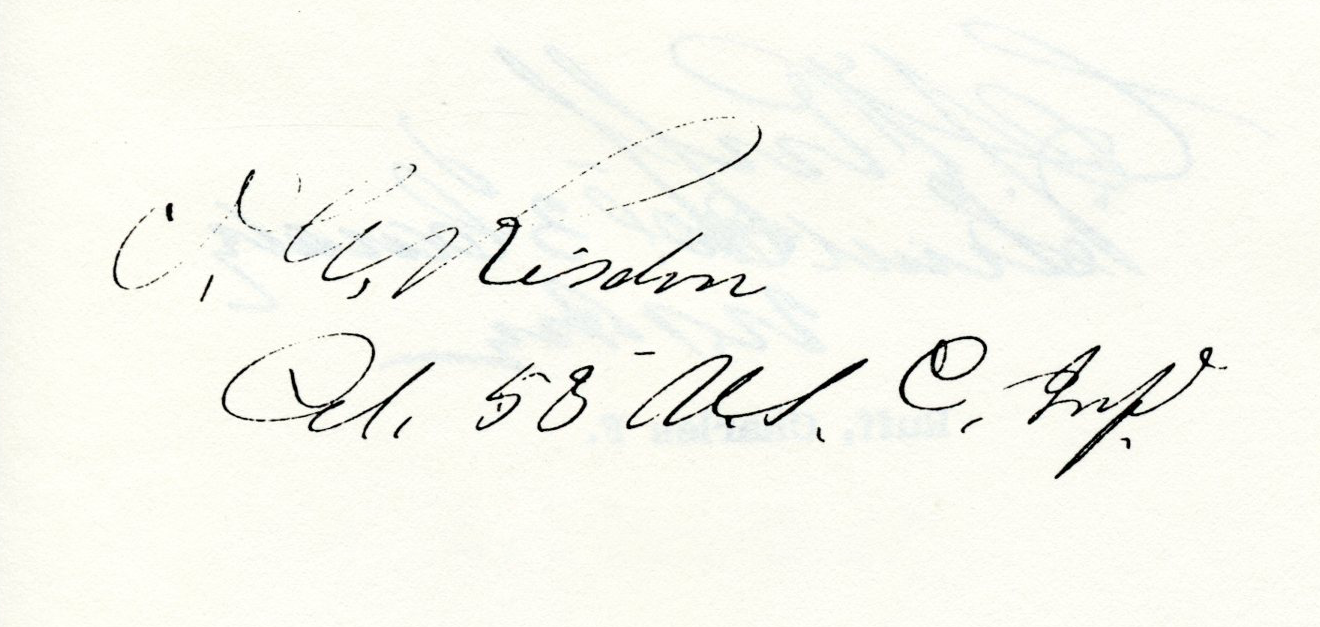 O. A. Risdon
Col. 58 U.S. C. Infy.